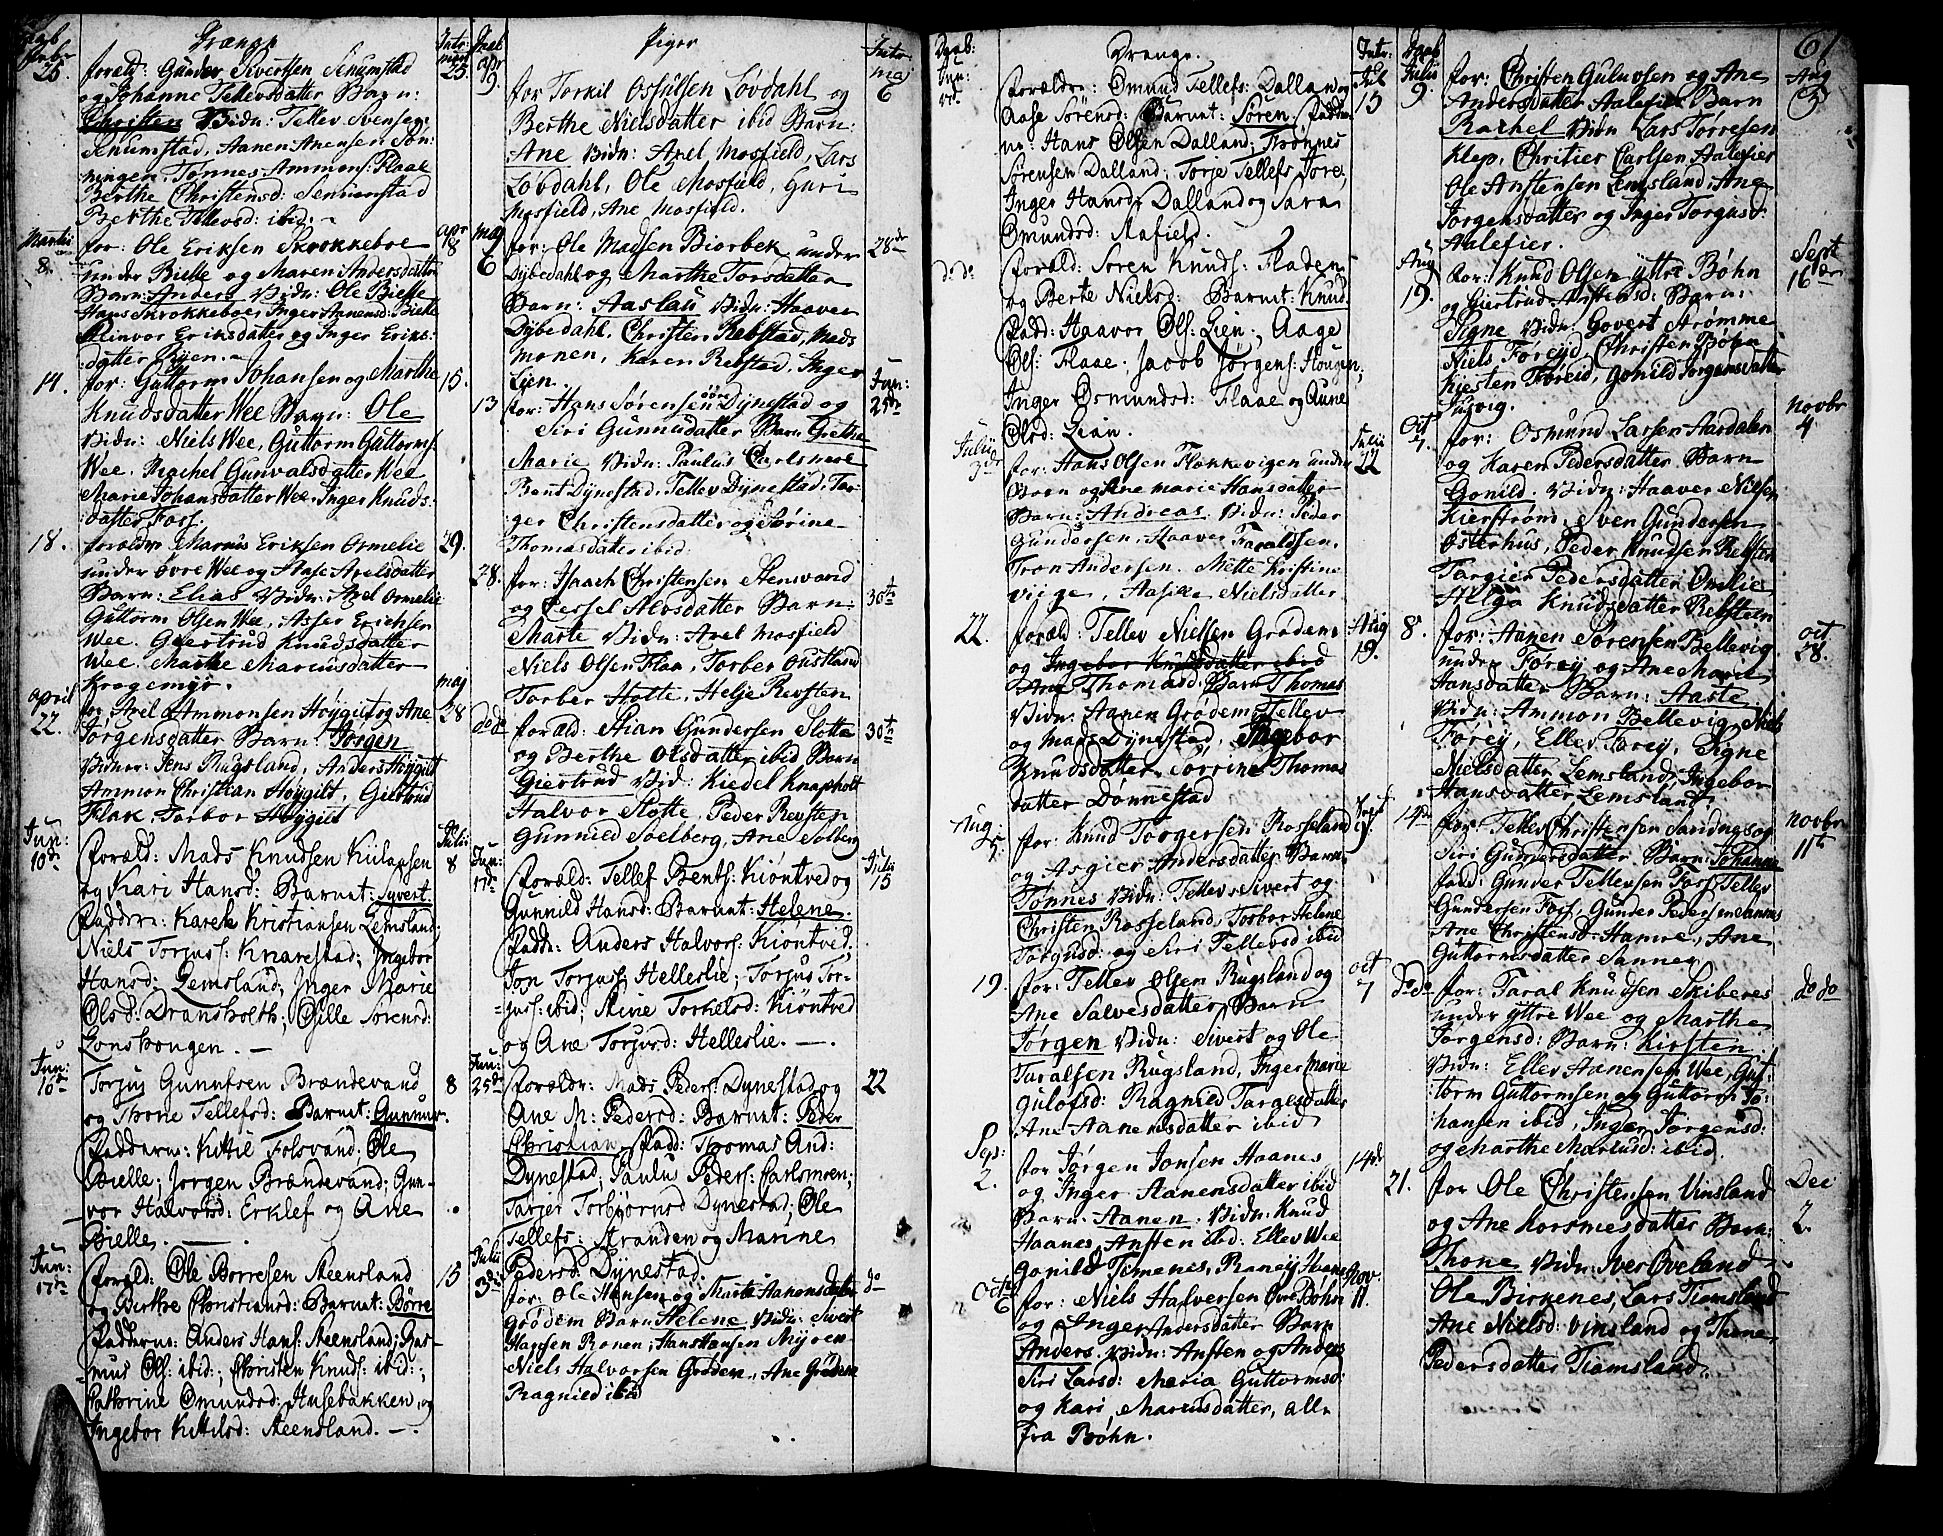 Drænge
Febr 25
foræld: Gunder Sivertsen Skumstad
og Johanne Tellevsdatter Barn:
Christen Vidn: Tellev Svensen
Skumstad, Aanen Anensen
Tønnes Ammons: Flaae
Berthe Christensd:
Berthe Tellevsd: ibid:
Martii 8
for: Ole Eriksen Skrokkeboe
under Bielle og Maren Andersdatter
Barn: Anders Vidn: Ole Bielle
Hans Skrokkeboe, Inger Aanensd: Bielle
Elinvor Eriksdatter og Inger Eriks-
datter Bijen.
apr 8
14.
for: Guttorm Johansen og Marthe
Knudsdatter Wee Barn: Ole
Vidn: Niels Wee, Guttorm Guttorms:
Wee. Rachel Gunvalsdatter Wee
Marie Johansdatter Wee. Inger Knuds-
datter Foss.
15.
18.
forældr Marcus Eriksen Ormelie
under Øvre Wee og Aase Axelsdatter
Barn: Elias Vidn: Axel Ormelie
Guttorm Olsen Wee, Asser Erichsen
Wee. Giertrud Knudsdatter
Wee. Marthe Marcusdatter
Krogemyr.
29.
April 22.
for Axel Ammonsen Høygilt og Ane
Jørgensdatter Barn: Jørgen
Vidner: Jens Rugsland, Anders Høygilt
Ammon Christian Høygilt, Giertrud
Flak, Torbor Høygilt
maj 28
Jun: 10de
foræld: Mads Knudsen
og Kari Hansd: Barnet: Syvert.
Faddrn: Karele Kristiansen Lemsland,
Niels Torjuss: Knarestad; Ingebor
Hansd: Lemsland; Inger Marie
Olsd: Dransholth; Sille Sorensd:
Lonshougen. —
Julii 8
Jun: 16de
Torjus Gunnufsen Brændevand
og Thone Tellefsd: Barnet: Gunnuv.
Faddern: Kittil Folsvand; Ole
Bielle; Jorgen Brændevand; Gun-
vor Halvorsd: Erklef og Ane
Bielle.
8
Jun: 17de
foræld: Ole Borresen Steensland
og Berthe Christiansd: Barnet: Børre
Fadderne: Anders Hans: Steensland; Ras-
mus Ols: ibid:; Christen Knuds: ibid:;
Cathrine Omundsd: Husebakken, og
Ingebor Kittilsd: Steensland. —.
15
Piger
apr 9
for Torkil Osfulsen Løvdahl og
Berthe Nielsdatter ibid Barn:
Ane Vidn: Axel Mosfield, Lars
Løvdahl, Ole Mosfield, Guri
Mosfield, Ane Mosfield.
maj 6
maj 6
for: Ole Madsen Biorbek under
Dybedahl og Marthe Torsdatter
Barn: Aaslau Vidn: Haaver
Dybedahl, Christen Rebstad, Mads
Monen, Karen Rebstad, Inger
Lien.
28de
13
for: Hans Sørensen Dynestad og
Siri Gunnudatter Barn Grethe
Marie Vidn: Paulus Carlsmoe
Bent Dynestad, Tellev Dynestad, Tar-
ger Christensdatter og Sørine
Thomasdatter ibid.
Jun: 25de
28.
for: Isaach Christensen Stensvand
og Sessel Alvsdatter Barn:
Marte Vidn: Axel Mosfield
Niels Olsen Flaa, Torber Oustland
Torber Hotte, Helje Revsten
30te
dodo
foræld: Stian Gundersen Slotte
og Berthe Olsdatter ibid Barn
Giertrud Vid: Kiedel Knapholt
Halvor Slotte, Peder Revsten
Gunnild Soelberg, Ane Solberg
30te
Jun: 17de
foræld: Tellef Bents: Kiøntved og
Gunnild Hansd: Barnet: Helene.
Faddr: Anders Halvors: Kiøntved,
Jon Torjuss: Helleslie; Torjus Tor-
jus: ibid; Stine Torkelsd: Kiøntved
og Ane Torjusd: Helleslie. —.
Julii 15
Jun: 25de
forældr: Mads Peders: Dynestad og
Ane M: Pedersd: Barnet: Peder
Christian, Fadd: Thomas And:
Dynestad; Paulus Peders: Carlsmoen;
Tarjer Torbjørnsd Dynestad; Ole
Tellefs: Stranden og Marine
Pedersd: Dynestad.
22
Julii 3de
for: Ole Hansen og Marte Aanensdatter
Grødem Barn Helene Vidn: Sivert
Hansen Ronen; Hans Hansen Myren
Niels Halvorsen Grødem, Ane Grødem
Ragnild ibid
do
Drenge.
Jun: 17de
forældre: Omund Tellefs: Dalland og
Aase Sørensd: Barnet: Søren; Fadder
ne: Hans Olsen Dalland; Tønnes
Sørensen Dalland; Torje Tellefs
Inger Hansd: Dalland og Sara
Omundsd: Aafield.
Jul 15
dodo
foræld: Soren Knuds: Fladen
og Berte Nielsd: Barnet: Knud.
Fadd: Haavor Ols: Lien; Aage
Ols: Flaae. Jacob Jørgens: Hougen;
Inger Osmundsd: Flaae og Aune
Olsd: Lien.
Julii 3de
for: Hans Olsen Flokkevigen under
Børn og Ane Marie Hansdatter
Barn: Andreas. Vidn: Peder
Gundersen, Haaver Faraldsen.
Tron Andersen. Mette Kristine
Viige, Aasike Nielsdatter
Julii 22
22.
foræld: Tellev Nielsen Grødem
og Ingebor Knudsdatter ibid
Ane Thomasd: Barn Thomas
Vidn: Aanen Grødem, Tellev
og Mads Dynestad, Ingebor
Knudsdatter, Sorrine Thomas
datter Dønnestad
Aug 19.
Aug 5
for: Knud Torgersen Rosseland
og Asgier Andersdatter Barn
Tønnes Vidn: Tellev Sivert og
Christen Rosseland, Torbor Helene
Torgusd: og Siri Tellevsd ibid
19.
for: Tellev Olsen Rugsland og
Ane Salvesdatter Barn
Jørgen Vidn: Sivert og Ole
Taralsen Rugsland, Inger Marie
Gulofsd: Ragnild Targesdatter
Ane Aanensdatter ibid
oct 7
Sep: 2.
for Jørgen Jonsen Haanes
og Inger Aanensdatter ibid
Barn: Aanen. Vidn: Knud
Haanes, Ansten ibid: Ellev Wee
Gonild Timenes, Raneij
14de
Octo 6
for: Niels Halversen Øvre Bøhn
og Inger Andersdatter Barn
Anders. Vidn: Ansten og Anders
Siri Larsd: Maria Guttormsd:
og Kari, Marcusdatter, alle
fra Bøhn.
Nov. 11.
61
Julii 9.
for: Christen Gulovsen og Ane
Andersdatter Aalefier Barn
Rachel Vidn Lars Torresen
Klep, Chritier Carlsen Aalefier
Ole Anstensen Lemsland, Ane
Jorgensdatter og Inger Torgusd
Aalefier.
Aug 5
Aug 19.
for: Knud Olsen Yttre Bøhn
og Giertrud Anstensd: Barn:
Signe Vidn: Govert Strømme
Niels Føreÿd, Christen Bøhn
Kiesten Føreid, Gonild Jorgensdatter
Juvig.
Sept 16de
Oct 7.
for: Osmund Larsen Aardalen
og Karen Pedersdatter Barn
Gonild. Vidn: Haaver Nielsen
Kierstrøm, Sven Gundersen
Osterhus, Peder Knudsen Rebsten
Targier Pedersdatter Omlie
Helga Knudsdatter Rebsteen
Novbr 4
8.
for: Aanen Sorensen Bellevig
under Foreÿ og Ane Marie
Hansdatter Barn: Aaste
Vidn: Ammon Bellevig, Niels
Foreÿ, Ellev Foreÿ, Signe
Nielsdatter Lemsland, Ingebor
Hansdatter Lemsland
oct 28.
14de
for: Tellev Christensen Sandnes og
Siri Gundersdatter Barn: Johanne
Fadd: Gunder Tellevsen Foss, Tellev
Gundersen Foss, Gunder Pedersen Sannes
Ane Christensd: Hamre, Ane
Guttormsdatter Sannes
Novbr 11te
dodo
for: Taral Knudsen Skiberes
under Yttre Wee og Marthe
Jørgensd: Barn: Kirsten.
Vidn: Ellev Aanensen Wee, Gut-
torm Guttormsen og Guttorm Jo-
hansen ibid, Inger Jørgensd:
og Marthe Marcusd: ibid
dodo
21.
for Ole Christensen Vinsland
og Ane Rorsmesdatter Barn:
Thone Vidn: Iver Øveland
Ole Birkenes, Lars Tiamsland
Ane Nielsd: Vinsland og Thone
Pedersdatter Tiamsland.
Dec 2.